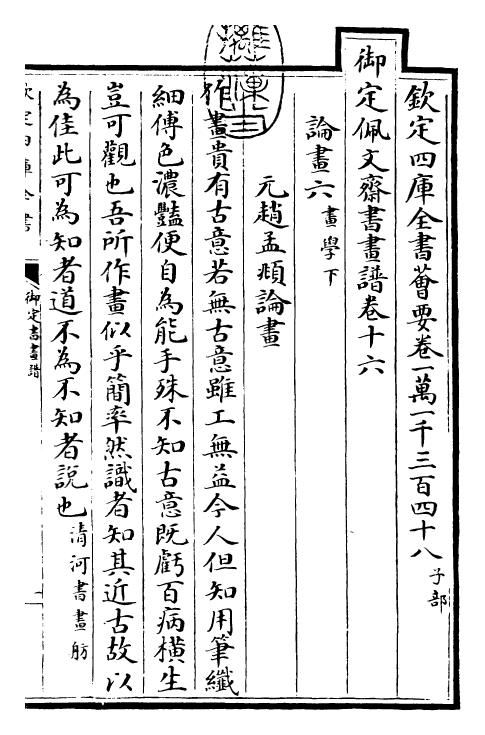 欽定四庫全書薈要卷一萬一千三百四十八子部
御定佩文齋書畫譜卷十六
論畫六畫學下
元趙孟頫論畫
作畫貴有古意若無古意雖工無益今人但知用筆纖
細傅色濃豔便自為能手殊不知古意既虧百病橫生
豈可觀也吾所作畫似乎簡率然識者知其近古故以
為佳此可為知者道不為不知者說也清河書畫舫
欽定四庫全書
御定書畫譜